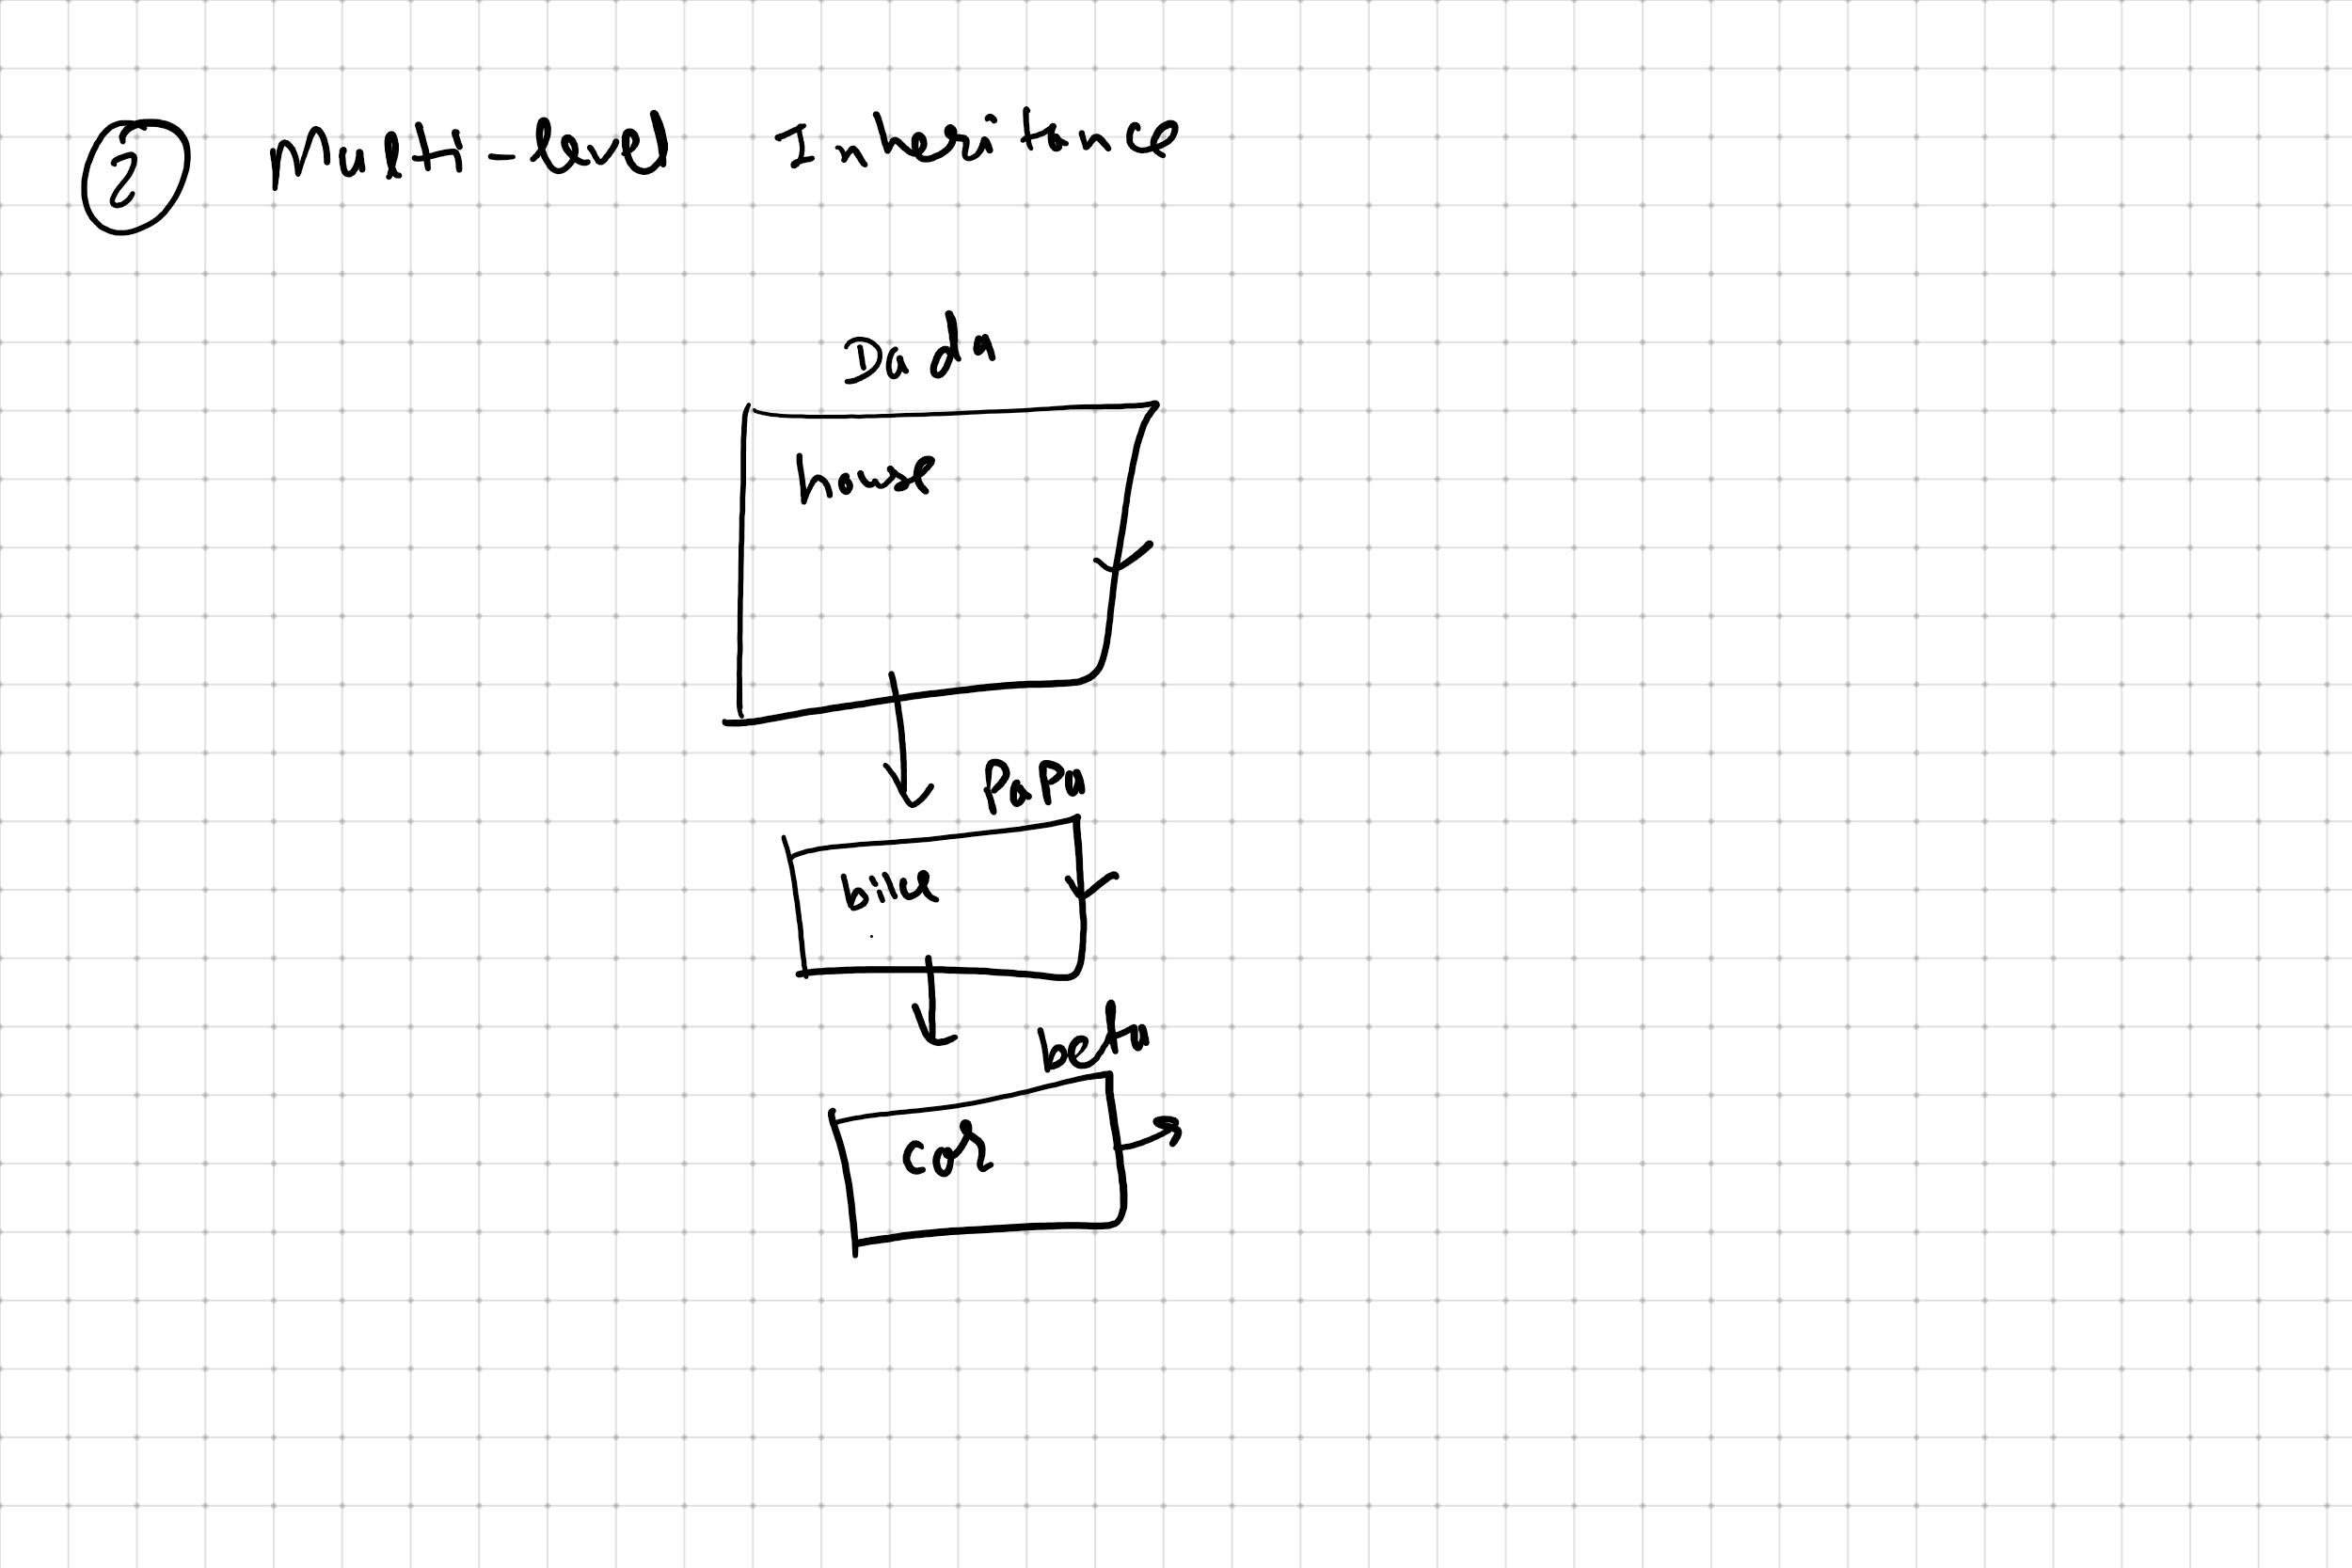 ② Multi-level Inheritnce
Dada
house
Papa
bike
beta
car